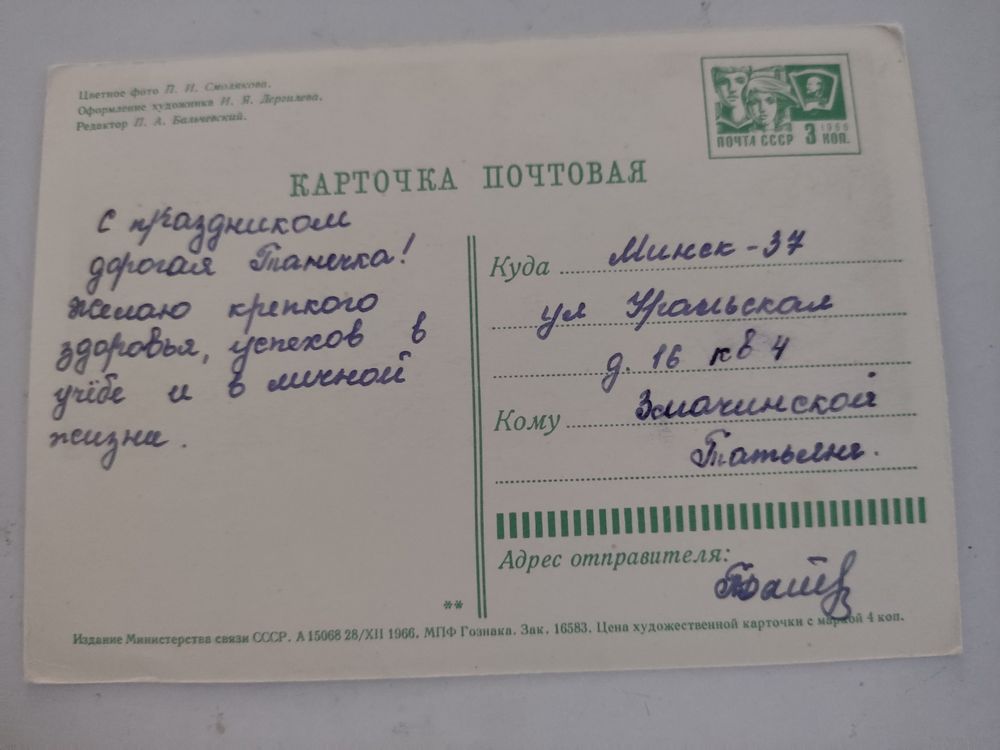 Цветное фото П. И. Смолякова.
Оформление художника И. Я. Дергилева.
Редактор П. А. Бальчевский.
1966
ПОЧТА СССР 3 КОП.
КАРТОЧКА ПОЧТОВАЯ
С праздником
дорогая Танечка!
желаю крепкого
здоровья, успехов в
учёбе и в личной
жизни.
Куда Минск-37
ул Уральская
д. 16 кв 4
Кому Змачинской
Татьяне.
Адрес отправителя:
**
Издание Министерства связи СССР. А 15068 28/XII 1966. МПФ Гознака. Зак. 16583. Цена художественной карточки с маркой 4 коп.